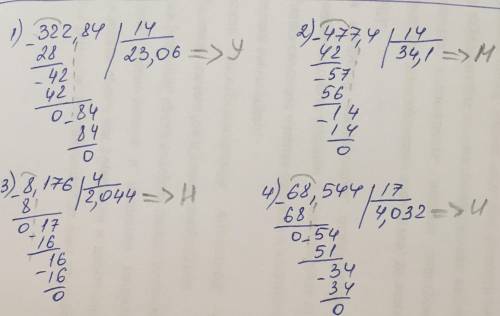 1) -322,84 | 14
28 | 23,06 => У
-42
42
0 -84
84
0
2) -477,4 | 14
42 | 34,1 => М
-57
56
-14
14
0
3) -8,176 | 4
8 | 2,044 => Н
0 17
-16
16
-16
0
4) -68,544 | 17
68 | 4,032 => И
0 -54
51
-34
34
0